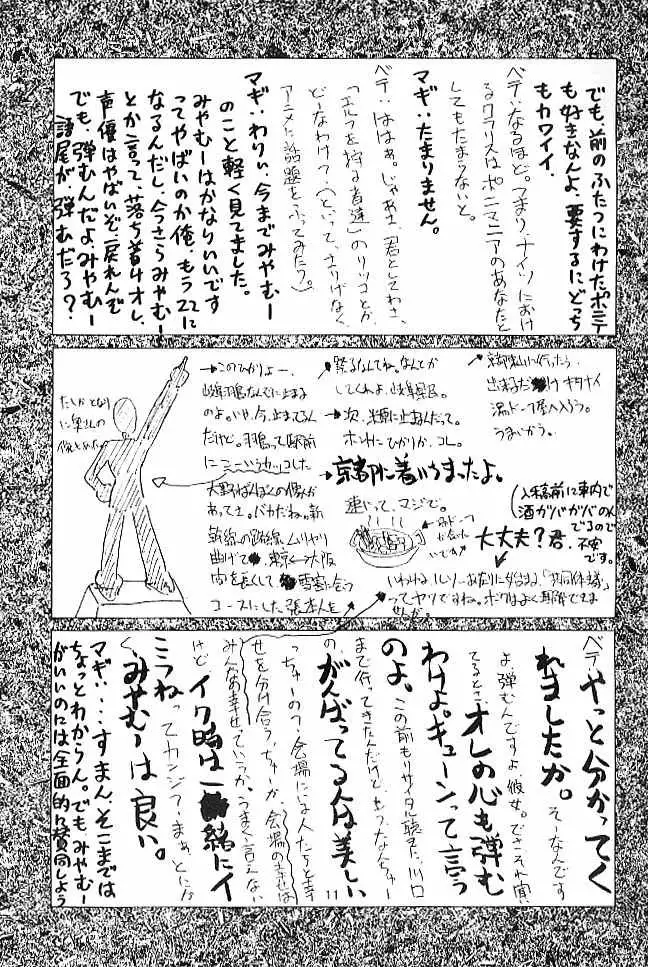 でも、前のふたつにわけたポニテ
も好きなんよ、要するにどっち
もカワイイ。
ベテ：なるほど。つまり、ナイツにおけ
るクラリスはポニマニアのあなたと
してもたまらないと。
マギ：たまりません。
ベテ：ははぁ。じゃあさ、君としてわさ、
「エルフを狩る者達」のリツコとか
どーなわけ？（といって、さりげなく
アニメに話題をふってみたり。）
マギ：わりぃ、今までみやむー
のこと軽く見てました。
みやむーはかなりいいです
ってやばいのか俺、もう22に
なるんだし、今さらみやむー
とか言って、落ち着けオレ、
声優はやばいぞ、戻れんぞ
でも、弾むんだよみやむー
語尾が弾むだろ？
京都駅に行ったら、
出まるだけキタナイ
うまいかう。
→このひかりよー、
岐阜羽島なんでに止まる
のよ。いや、今、止まってるん
だけど。羽島って駅前
大野ばんぼくの像が
あってさ。バカだね。新
幹線の路線、ムリヤリ
曲げて 東京←→大阪
間を長くして 雪害に会う
コースにした張本人を
してくれよ、岐阜県民。
→次、米原に止まるんだって。
ホントにひかりか、コレ。
→京都に着いちまったよ。
速いって、マジで。
（入稿前に車内で
酒ガバガバのん
でるので
不安
です。
大丈夫？君、
いわゆる「共同体」
ってヤツですね。ボクはよく理解できま
せんが。
ベテ：やっと分かってく
れましたか。そーなんです
よ、弾むんですよ、彼女。でさそれ演
てるときオレの心も弾む
わけよ。キューンって言う
のよ、この前もリサイタル聴きに川口
まで行ってきたんだけど、もうなんちゅー
の、がんばってる人は美しい
っちゅーの？会場にいる人たちと幸
せを分け合う、ちゅーか、会場の幸せは
みんなの幸せっていうか、うまく言えない
けど、イク時は一緒にイ
こうねってカンジ？まぁ、とにか
く、みやむーは良い。
マギ：…すまん、そこまでは
ちょっとわからん。でも、みやむー
がいいのには全面的に賛同しよう